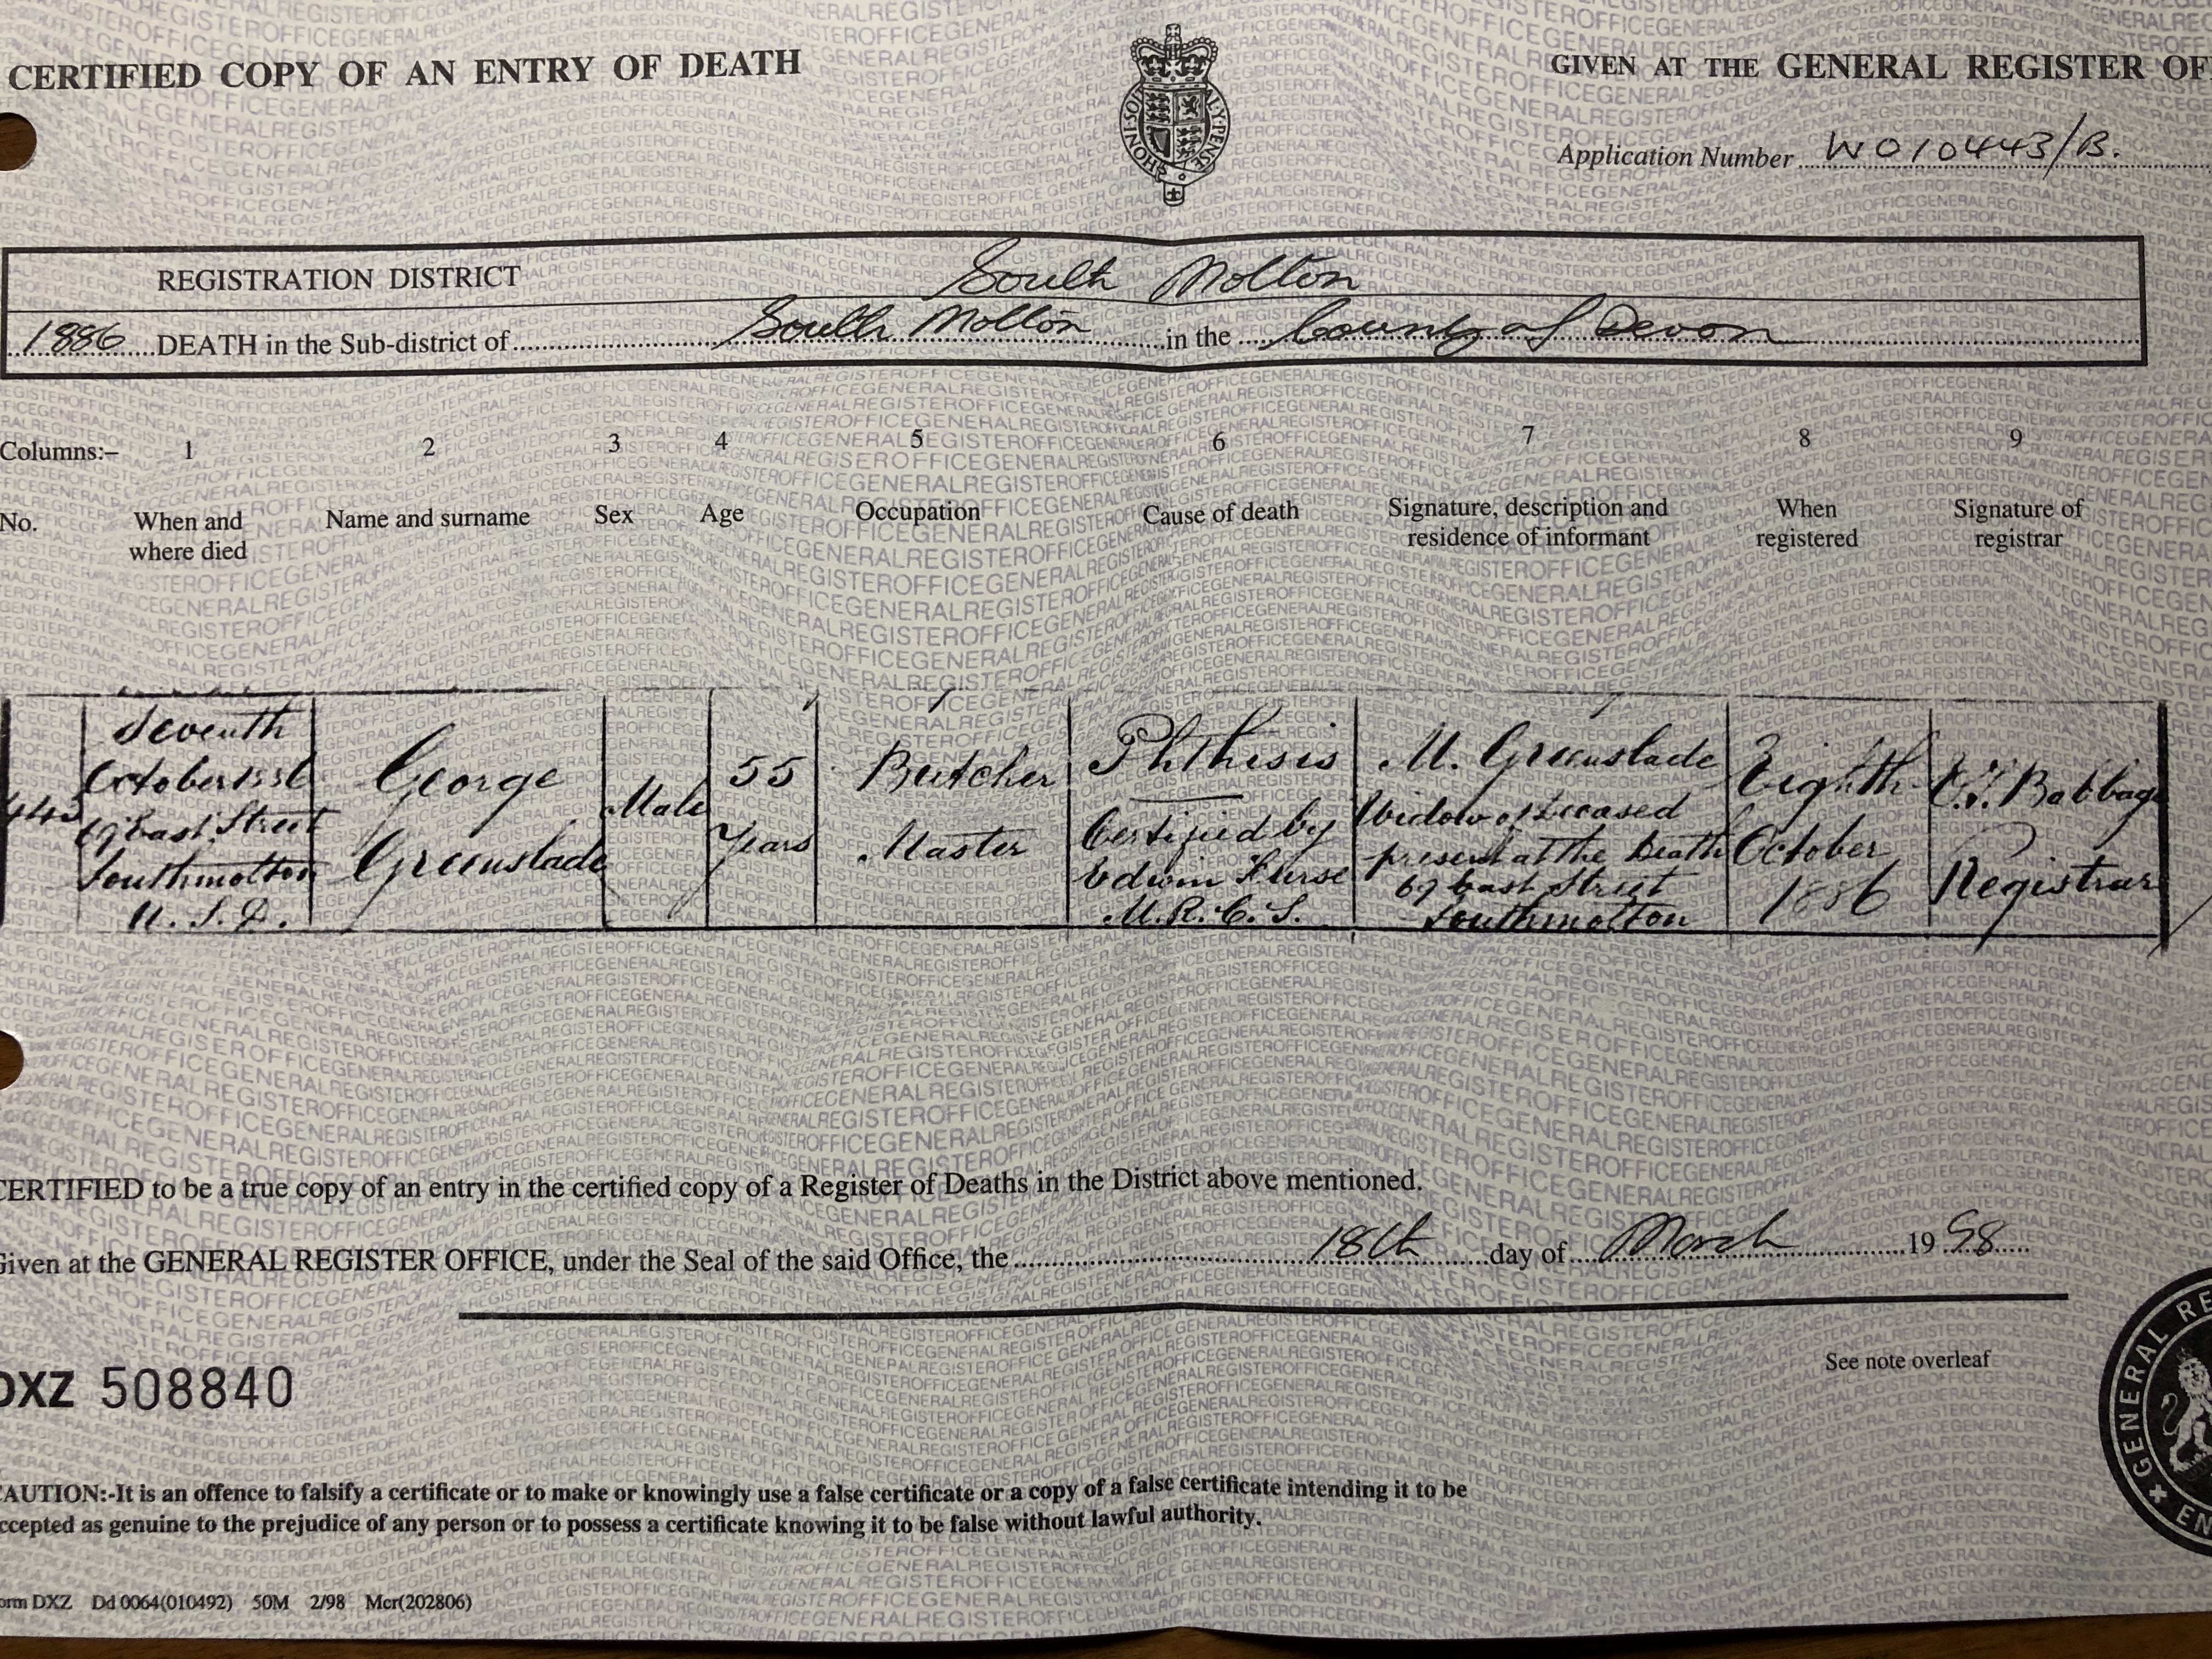 CERTIFIED COPY OF AN ENTRY OF DEATH
GIVEN AT THE GENERAL REGISTER OF
Application Number W010443/B.
REGISTRATION DISTRICT South Molton
1886 DEATH in the Sub-district of South Molton in the County of Devon
Columns:– 1 2 3 4 5 6 7 8 9
No. When and where died Name and surname Sex Age Occupation Cause of death Signature, description and residence of informant When registered Signature of registrar
Seventh
October 1886
69 East Street
Southmolton
U. S. D.
George
Greenslade
Male
55
Years
Butcher
Master
Phthisis
Certified by
Edwin Furse
M.R.C.S.
M. Greenslade
Widow of deceased
present at the Death
69 East Street
Southmolton
Eighth
October
1886
Babbage
Registrar
CERTIFIED to be a true copy of an entry in the certified copy of a Register of Deaths in the District above mentioned.
Given at the GENERAL REGISTER OFFICE, under the Seal of the said Office, the 18th day of March 1998
See note overleaf
DXZ 508840
GENERAL RE
EN
CAUTION:-It is an offence to falsify a certificate or to make or knowingly use a false certificate or a copy of a false certificate intending it to be
accepted as genuine to the prejudice of any person or to possess a certificate knowing it to be false without lawful authority.
orm DXZ Dd 0064(010492) 50M 2/98 Mcr(202806)